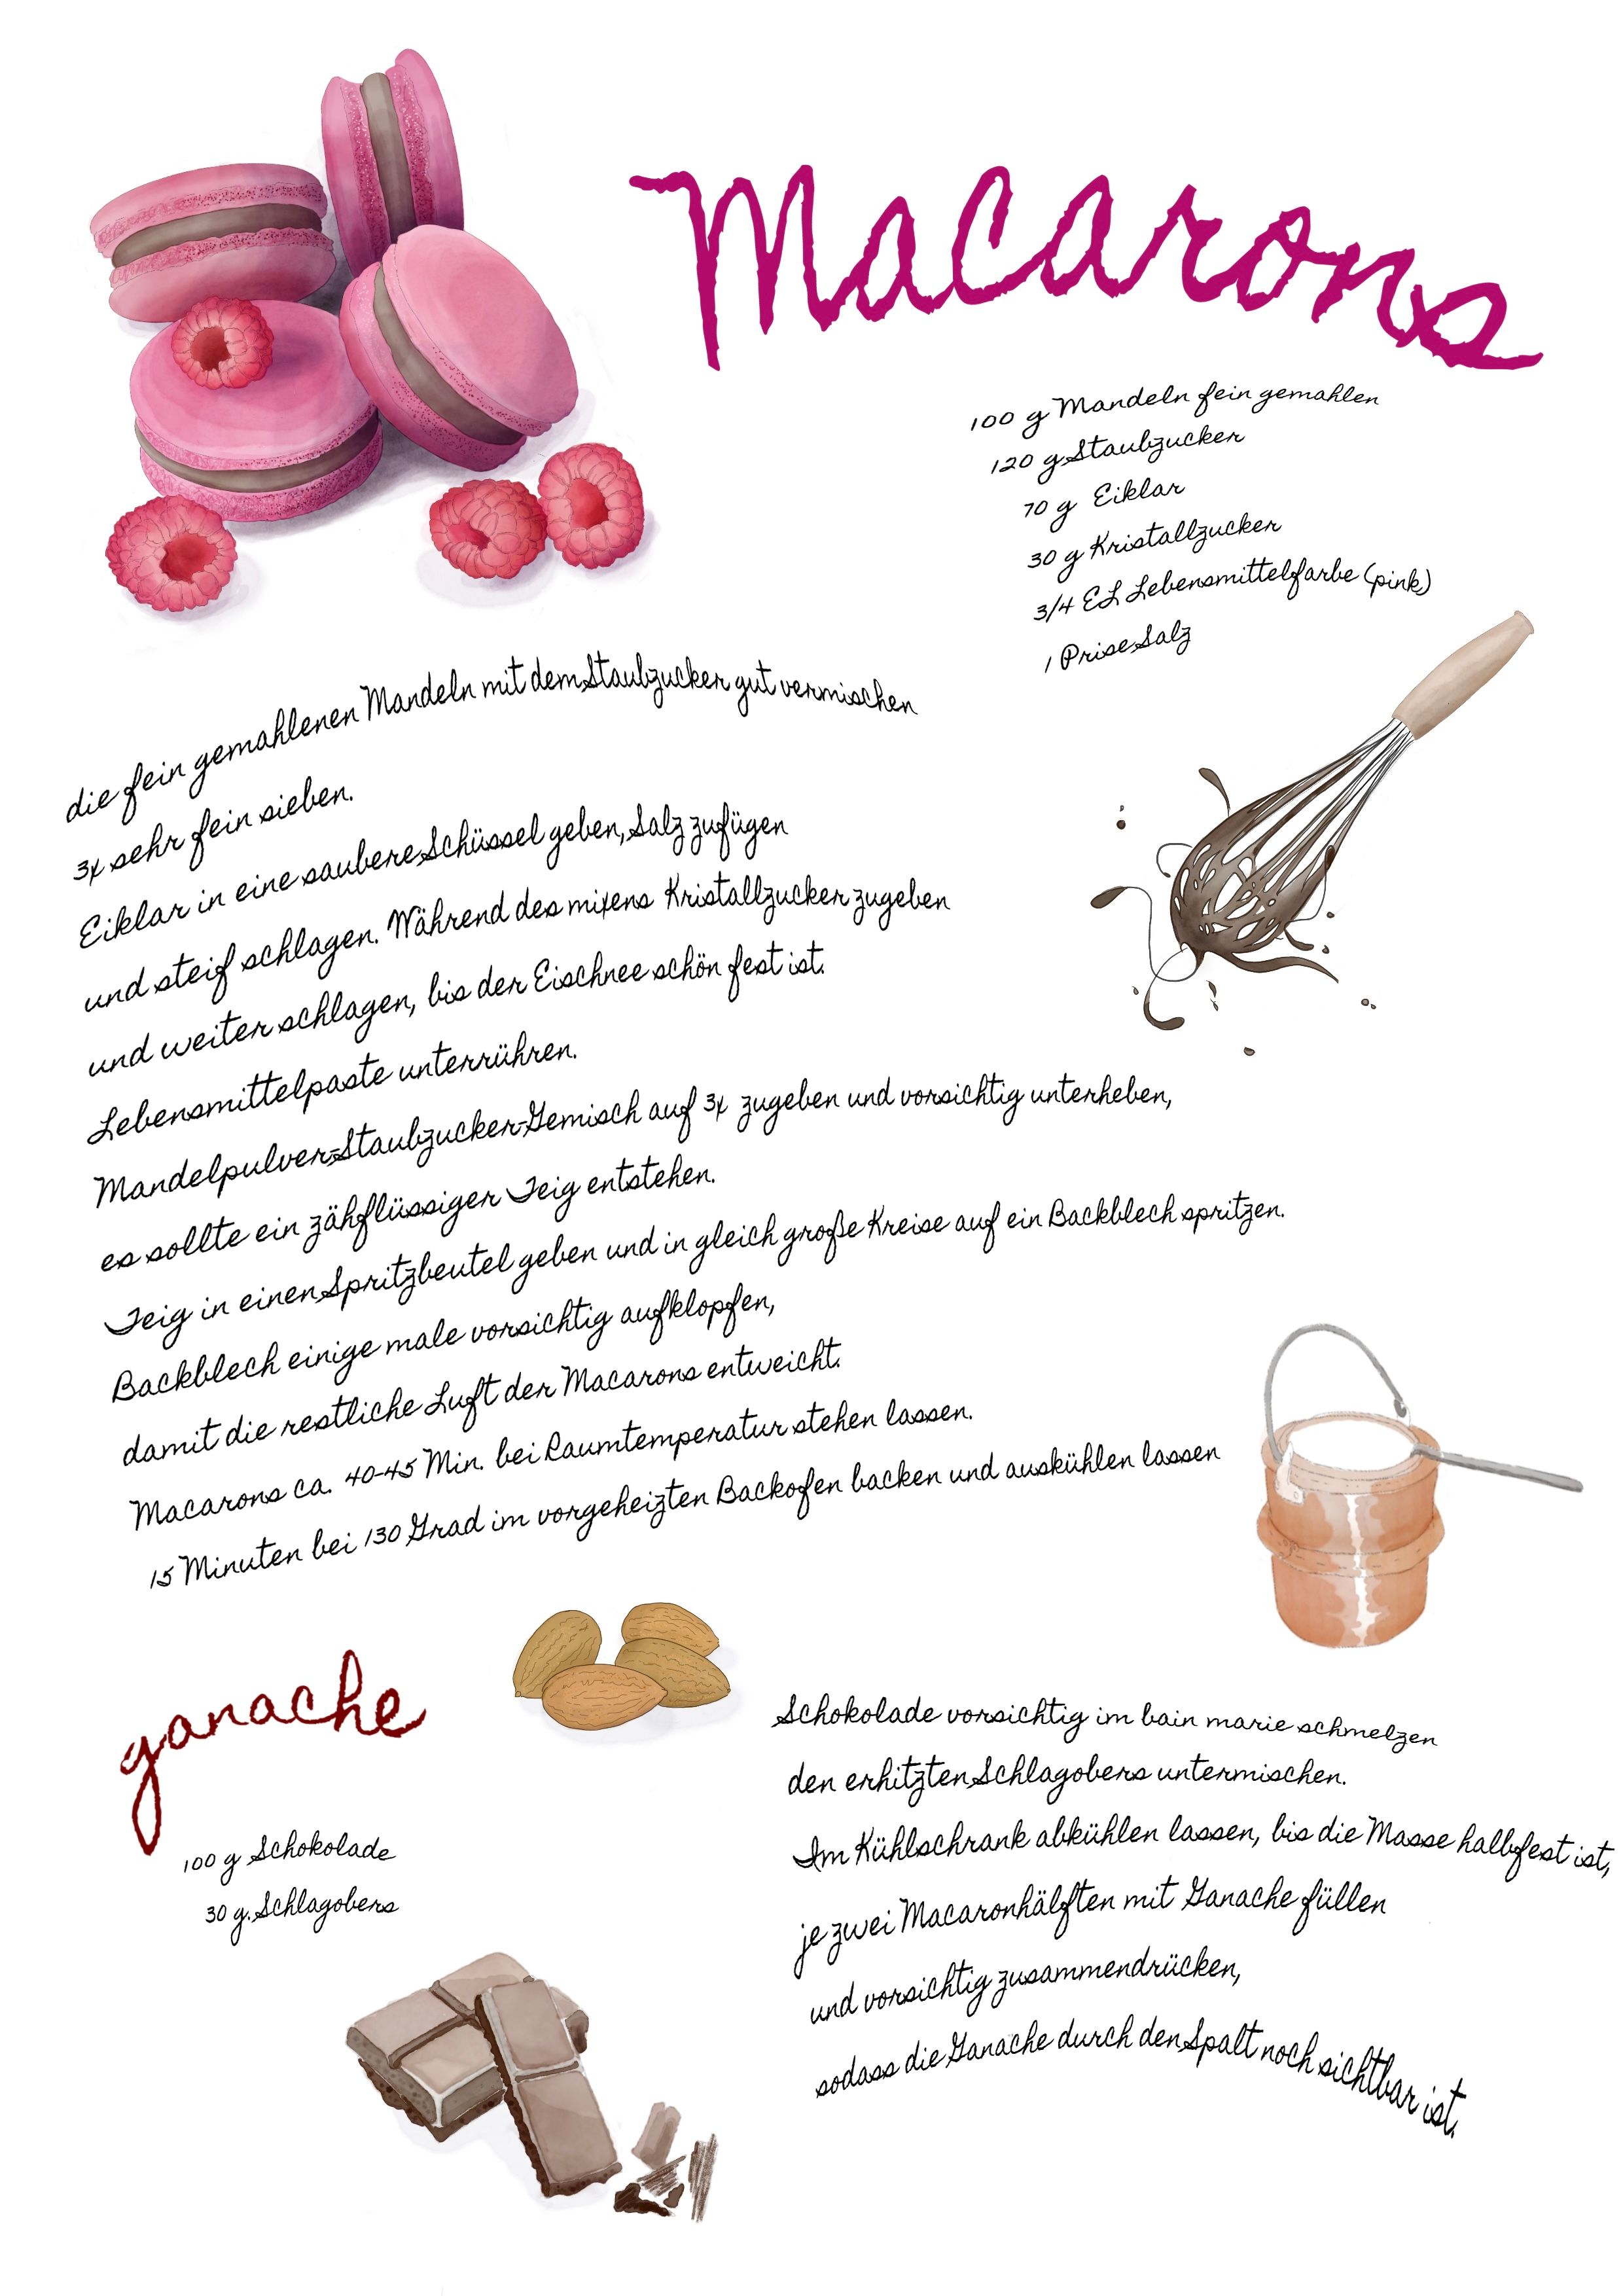 Macarons
100 g Mandeln fein gemahlen
120 g Staubzucker
70 g Eiklar
30 g Kristallzucker
3/4 EL Lebensmittelfarbe (pink)
1 Prise Salz
die fein gemahlenen Mandeln mit dem Staubzucker gut vermischen
3x sehr fein sieben.
Eiklar in eine saubere Schüssel geben, Salz zufügen
und steif schlagen. Während des mixens Kristallzucker zugeben
und weiter schlagen, bis der Eischnee schön fest ist.
Lebensmittelpaste unterrühren.
Mandelpulver-Staubzucker-Gemisch auf 3x zugeben und vorsichtig unterheben,
es sollte ein zähflüssiger Teig entstehen.
Teig in einen Spritzbeutel geben und in gleich große Kreise auf ein Backblech spritzen.
Backblech einige male vorsichtig aufklopfen,
damit die restliche Luft der Macarons entweicht.
Macarons ca. 40-45 Min. bei Raumtemperatur stehen lassen.
15 Minuten bei 130 Grad im vorgeheizten Backofen backen und auskühlen lassen
ganache
100 g Schokolade
30 g. Schlagobers
Schokolade vorsichtig im bain marie schmelzen
den erhitzten Schlagobers untermischen.
Im Kühlschrank abkühlen lassen, bis die Masse halbfest ist,
je zwei Macaronhälften mit Ganache füllen
und vorsichtig zusammendrücken,
sodass die Ganache durch den Spalt noch sichtbar ist.